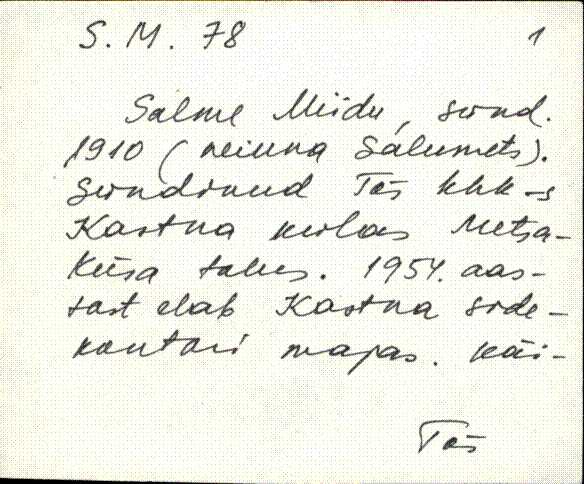 S. M. 78 1
Salme Miidu, sünd.
1910 (neiuna Salumets).
Sündinud Tõs khk-s
Kastna külas Metsa-
küsa talus. 1954. aas-
tast elab Kastna side-
kontori majas. Käi-
Tõs